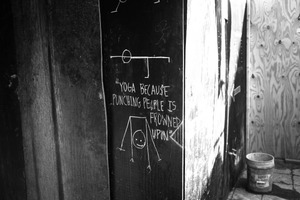 "YOGA BECAUSE
PUNCHING PEOPLE IS
FROWNED
UPON"